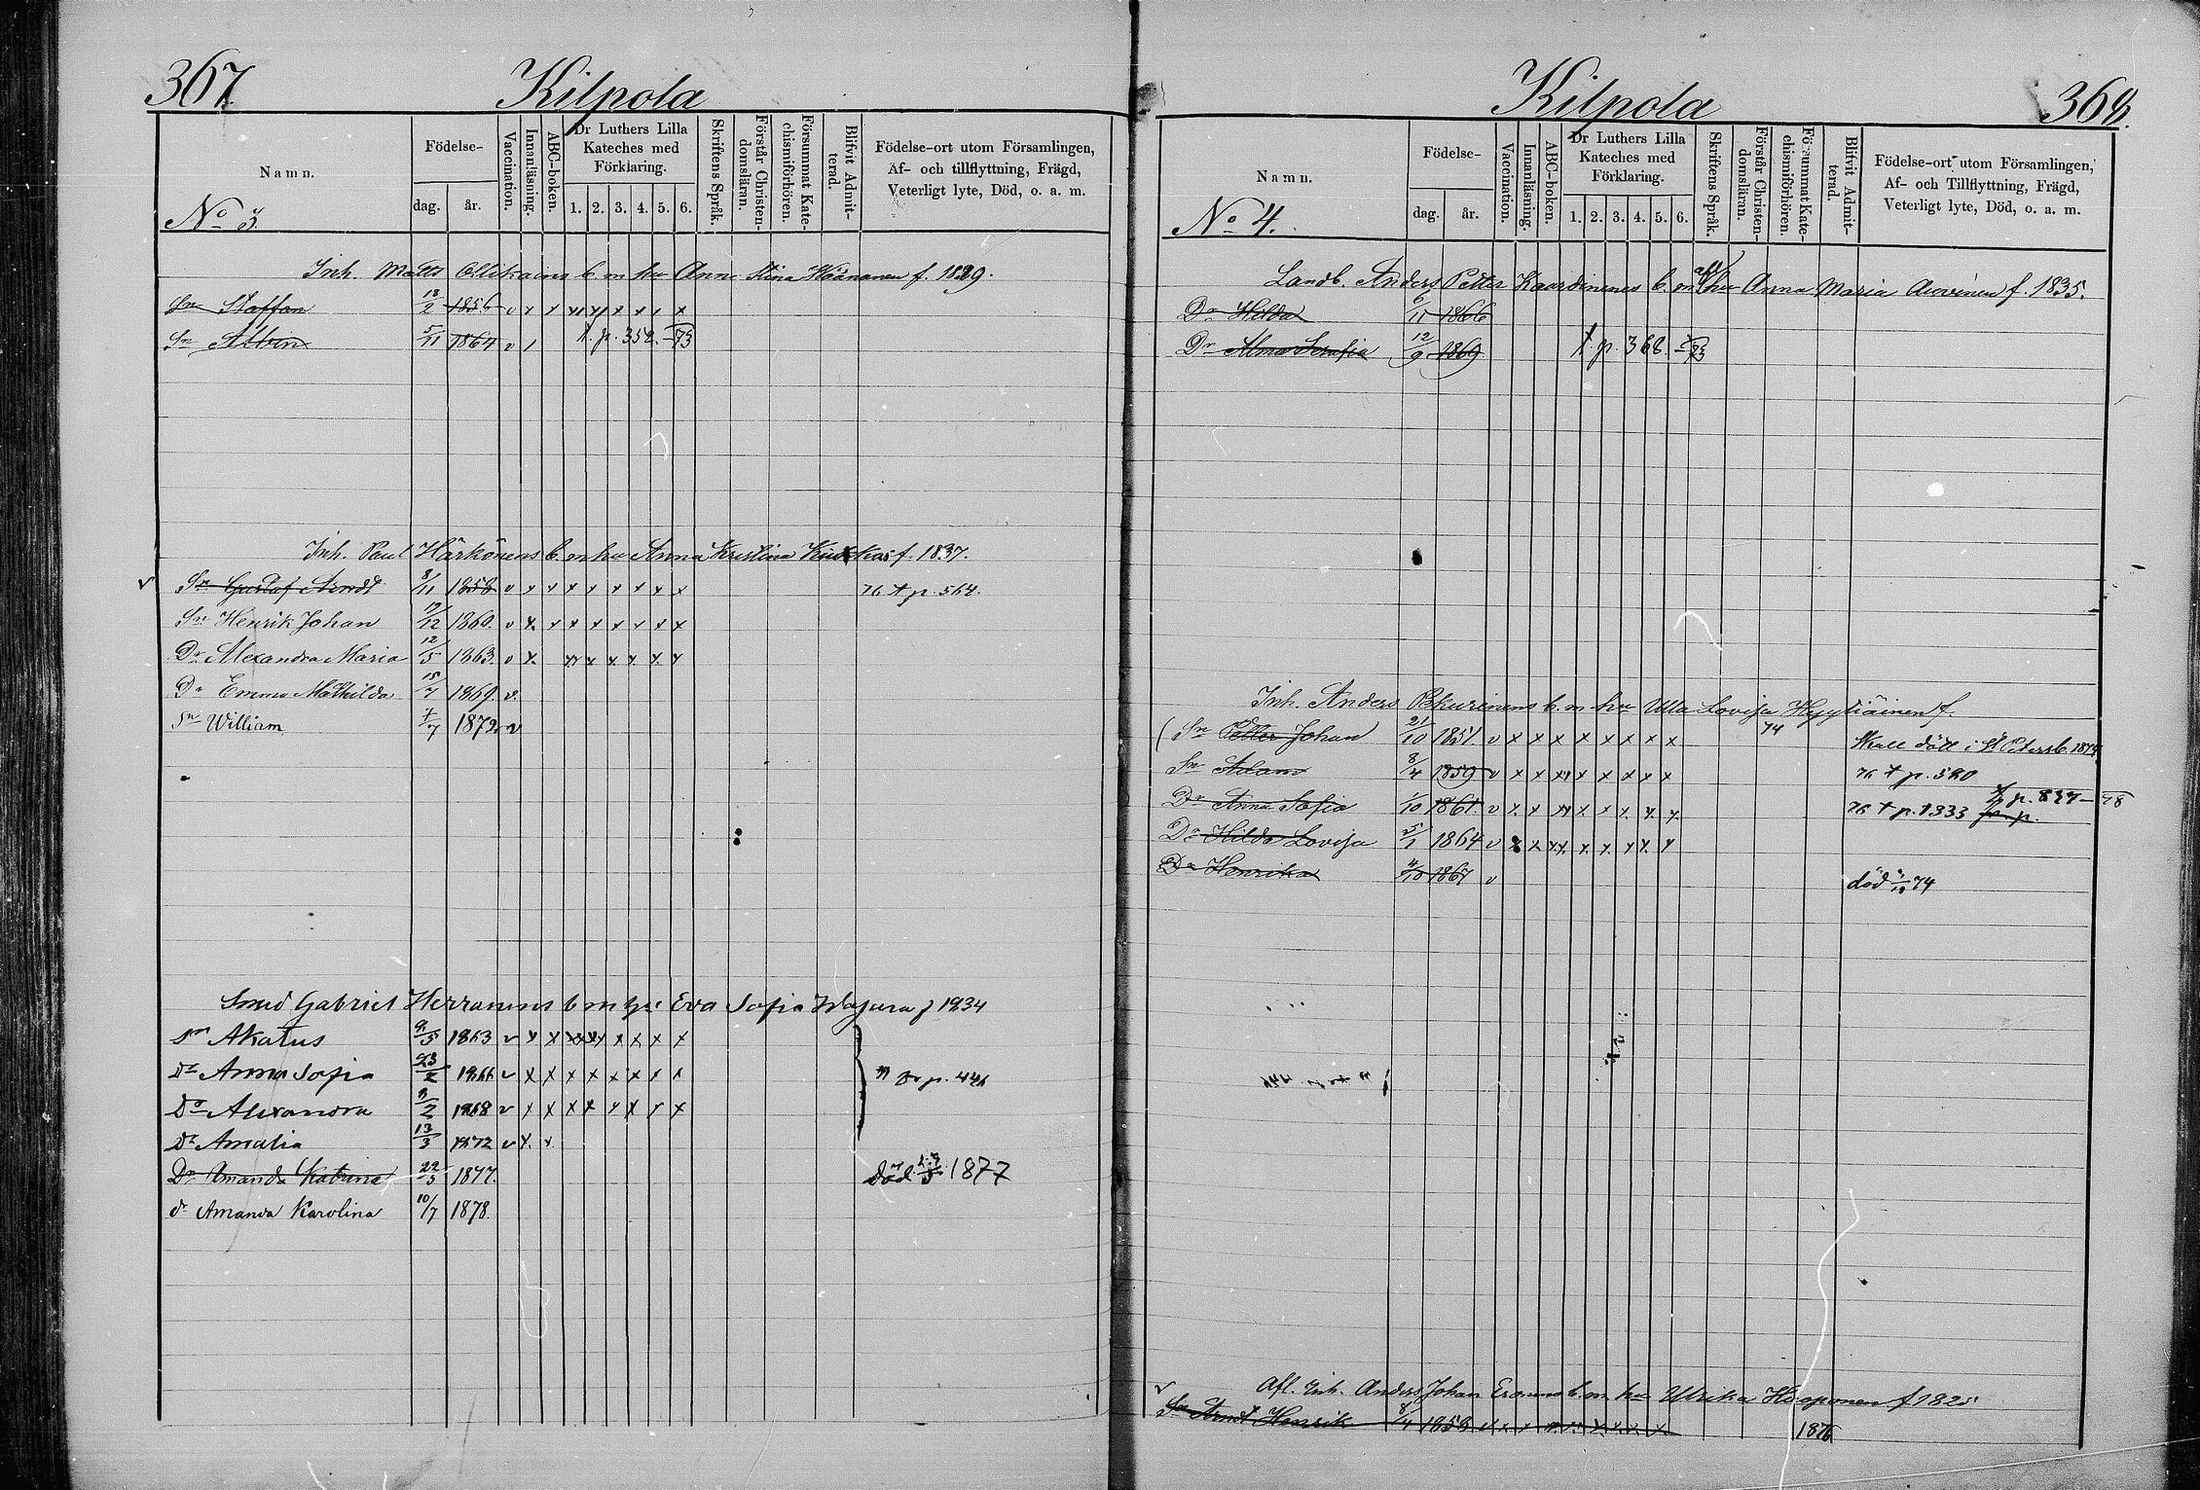 367.
Kilpola
Namn.
Födelse-
dag.
år.
Vaccination.
Innanläsning.
ABC-boken.
Dr Luthers Lilla
Kateches med
Förklaring.
1. 2. 3. 4. 5. 6.
Skriftens Språk.
Förstår Christen-
domsläran.
Försummat Kate-
chismiförhören.
Blifvit Admit-
terad.
Födelse-ort utom Församlingen,
Af- och tillflyttning, Frägd,
Veterligt lyte, Död, o. a. m.
No 3.
Inh. Matts Ollikainens b. m hu Anna Stina f. 1829.
Sn Staffan 18/2 1856 v x x x x x x x x
Sn Albin 5/11 1864 v / t. p. 352. 73
Inh. Paul Härkönens b. m hu Anna Kristina f. 1837.
v Sn Gustaf Arndt 8/11 1858 v x x x x x x x x 76 t p. 564.
Sn Henrik Johan 19/12 1860. v x x x x x x x x
Dr Alexandra Maria 12/5 1863. v x. x x x x x x x
Dr Emma Mathilda 15/7 1869. v.
Sn William 7/7 1872. v
Smed Gabriel Herranens b m hu Eva Sofia f 1834
Sn Akatus 9/5 1863 v x x x x x x x x
Dr Anna Sofia 1866 v x x x x x x x x
p. 446
Dr Alexandra 9/2 1868 v x x x x x x x x
Dr Amalia 13/3 1872 v x. x
Dr Amanda Katrina 22/5 1877. död 1877
dr Amanda Karolina 10/7 1878.
Kilpola
368.
Namn.
Födelse-
dag.
år.
Vaccination.
Innanläsning.
ABC-boken.
Dr Luthers Lilla
Kateches med
Förklaring.
1. 2. 3. 4. 5. 6.
Skriftens Språk.
Förstår Christen-
domsläran.
Försummat Kate-
chismiförhören.
Blifvit Admit-
terad.
Födelse-ort utom Församlingen,
Af- och Tillflyttning, Frägd,
Veterligt lyte, Död, o. a. m.
No 4.
Landb. Anders Petter Kaardinenes b. m hu Anna Maria Auvinen f. 1835.
Dr Hilda 6/11 1866
Dr Alma Serafia 12/9 1869 t. p. 368.
Inh. Anders Pekurinens b. m hu Ulla Lovisa Hyytiäinen f.
Sn Petter Johan 21/10 1851. v x x x x x x x x 74 Skall dött i St Petersb. 1874
Sn Adam 8/4 1859 v x x x x x x x x 76 t p. 580
Dr Anna Sofia 1/10 1861. v x. x x x x x x x. 76 t p. 1333 p. 827-78
Dr Hilda Lovisa 1864 v x x x x x x x x
Dr Henrika 4/10 1867 v död 74
Afl. Inh. Anders Johan b. m hu Ulrika f 1825
v Sn Arndt Henrik 8/4 1858 v x x x x x x x x 1876